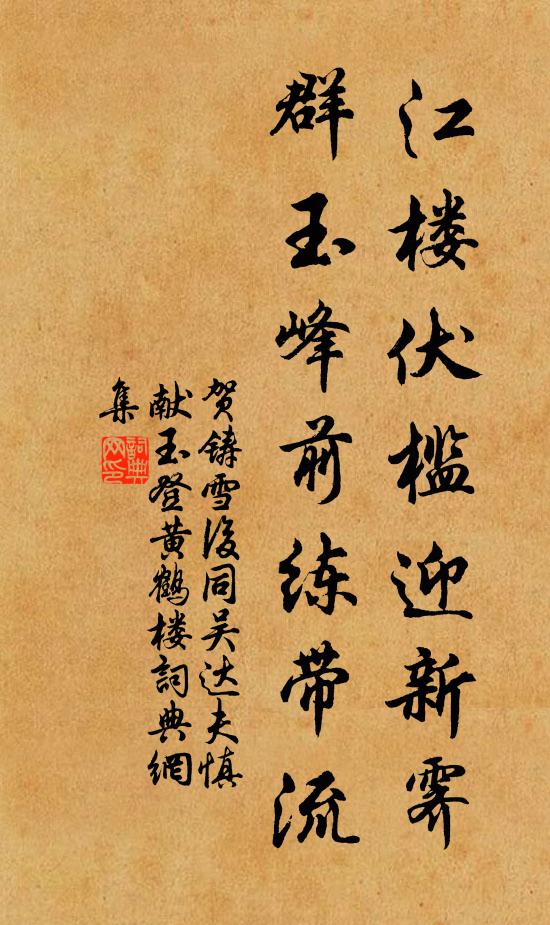 江楼伏槛迎新霁
群玉峰前练带流
贺铸雪後同吴达夫慎
献玉登黄鹤楼詞典網
集
詞典
网印